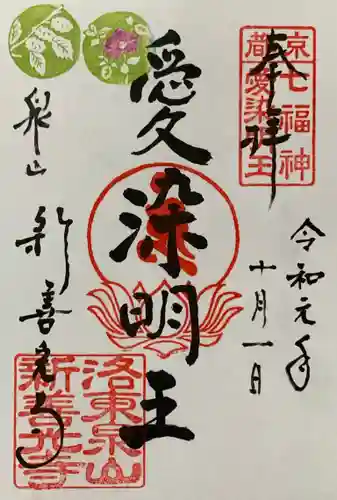 奉拝
京都
七福神
愛染明王
令和元年
十月一日
愛染明王
泉山
新善光寺
洛東泉山
新善光寺